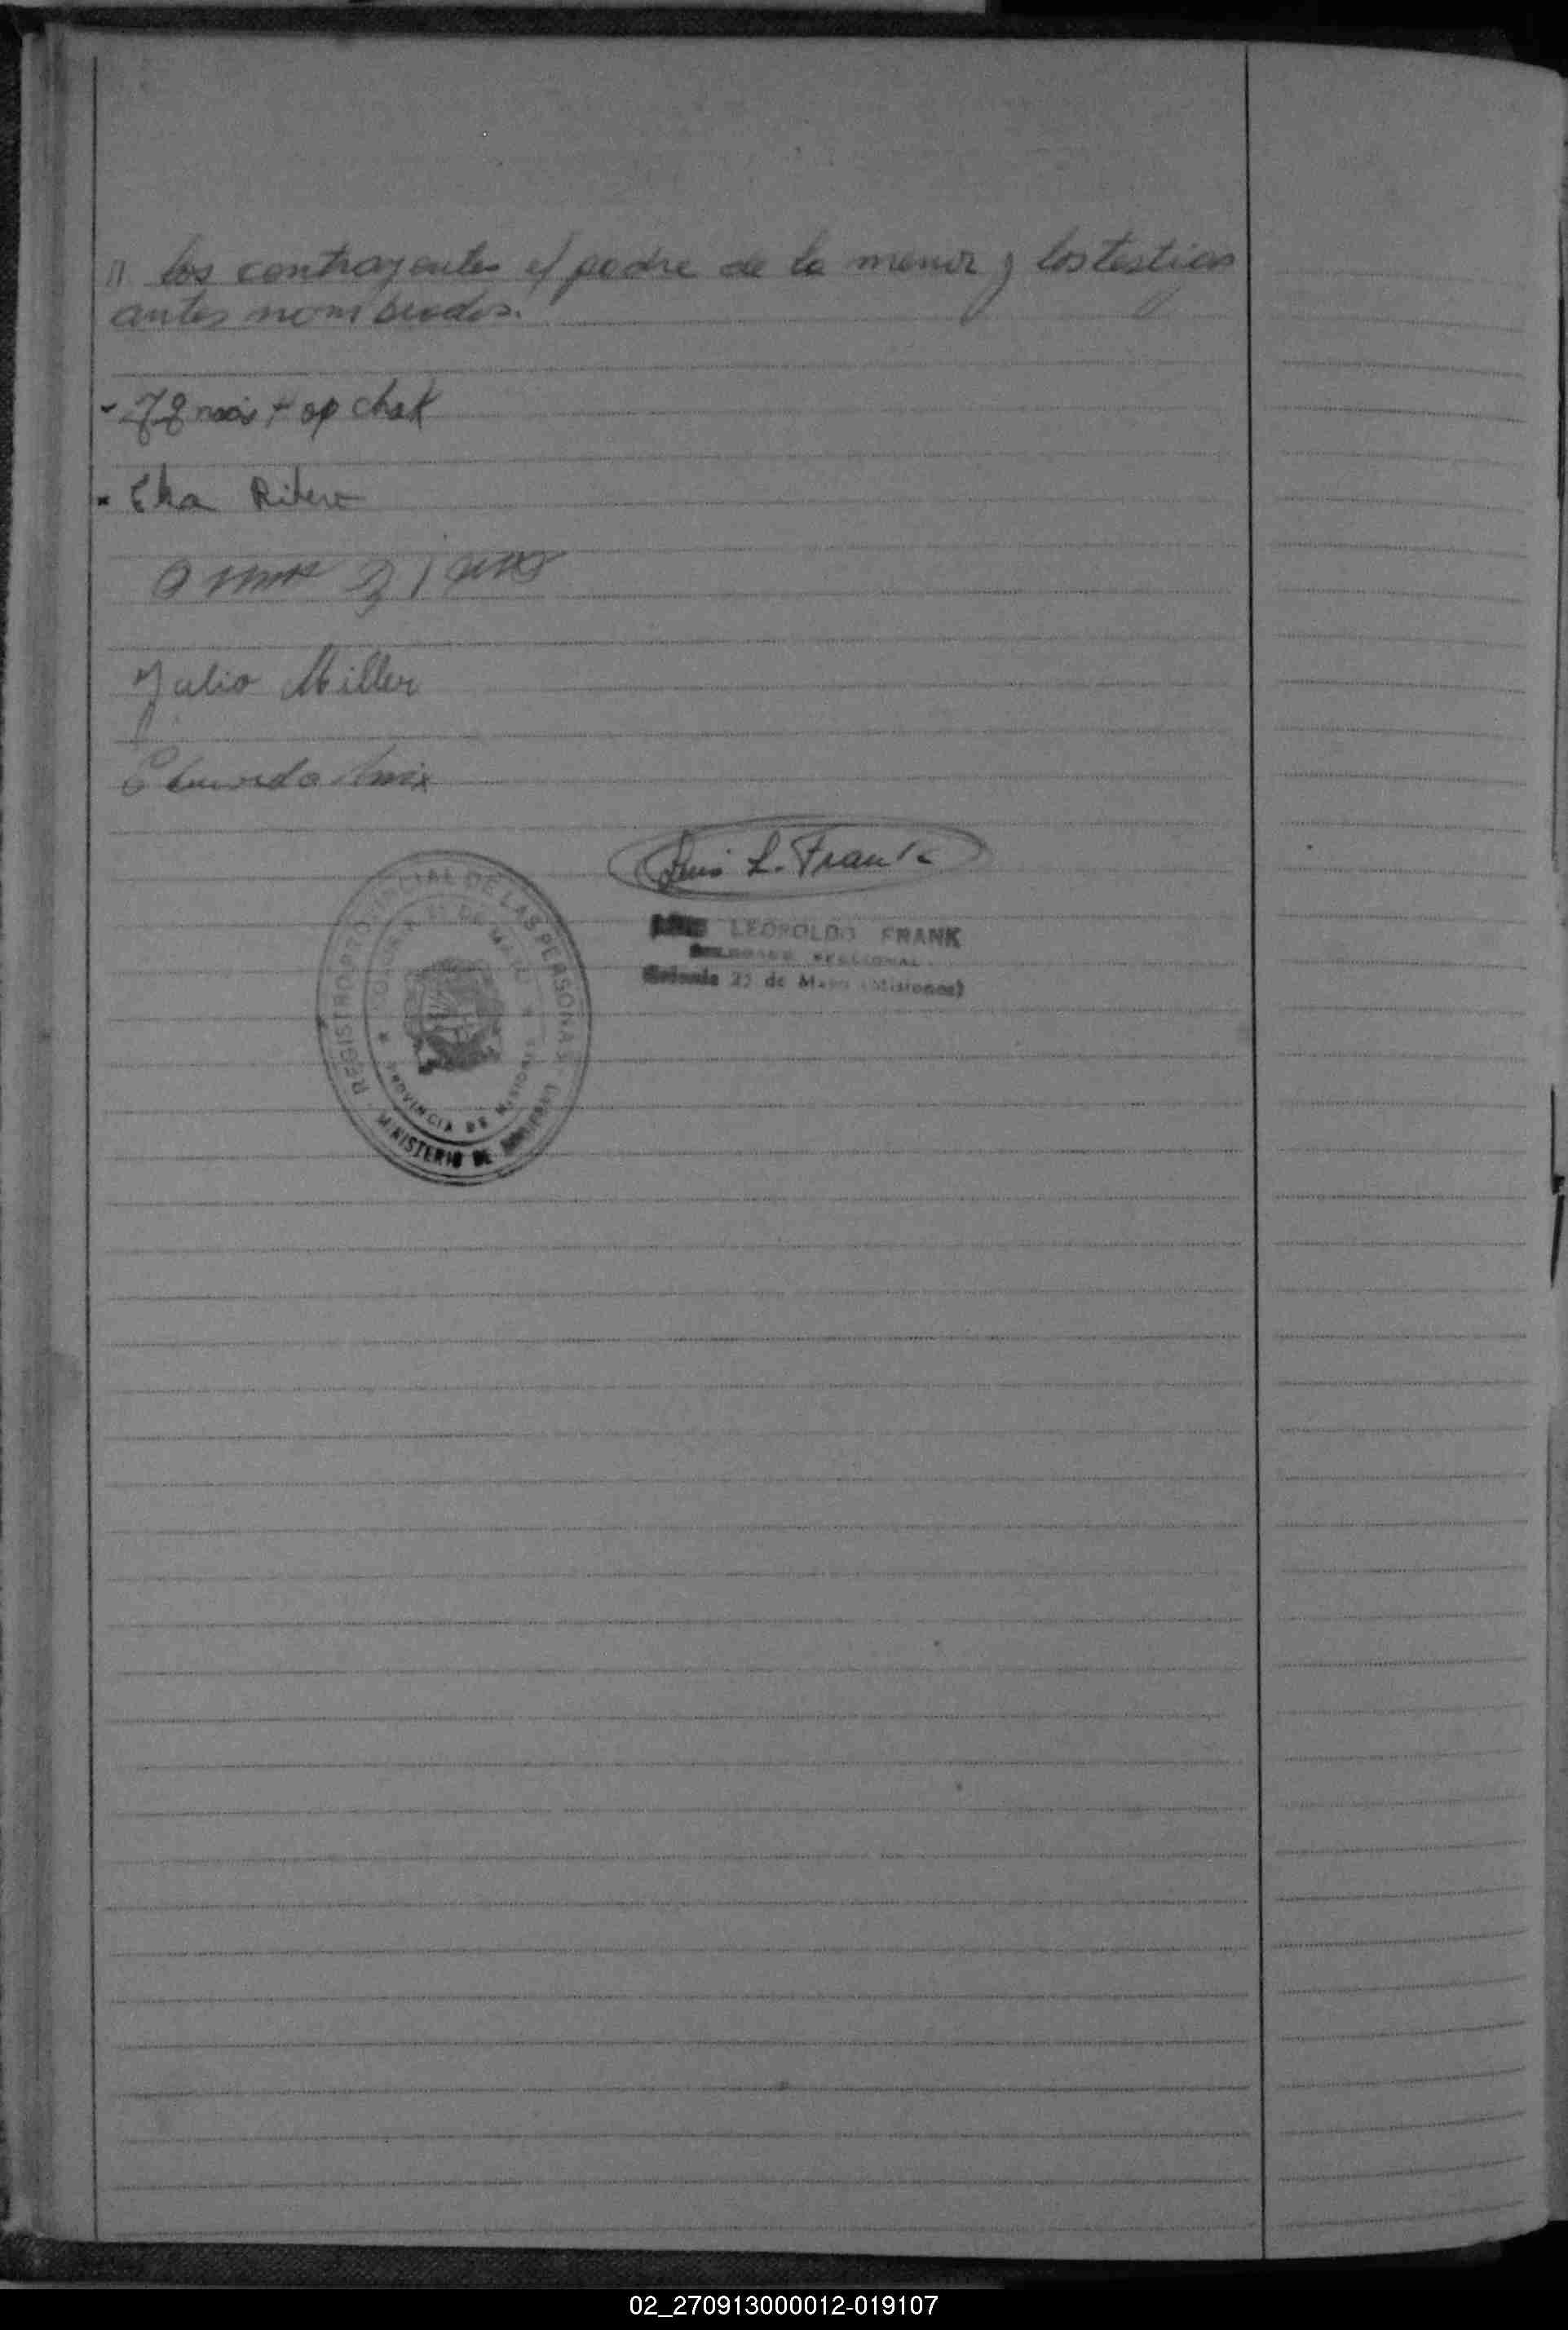 " los contrayentes el padre de la menor y los testigos
antes nombrados.
- chak
- Elsa Ribero
Julio Miller
Eduardo
Luis L. Frank
LUIS LEOPOLDO FRANK
DELEGADO SECCIONAL
Colonia 25 de Mayo (Misiones)
REGISTRO PROVINCIAL DE LAS PERSONAS
COLONIA 25 DE MAYO
PROVINCIA DE MISIONES
MINISTERIO DE GOBIERNO
02_270913000012-019107